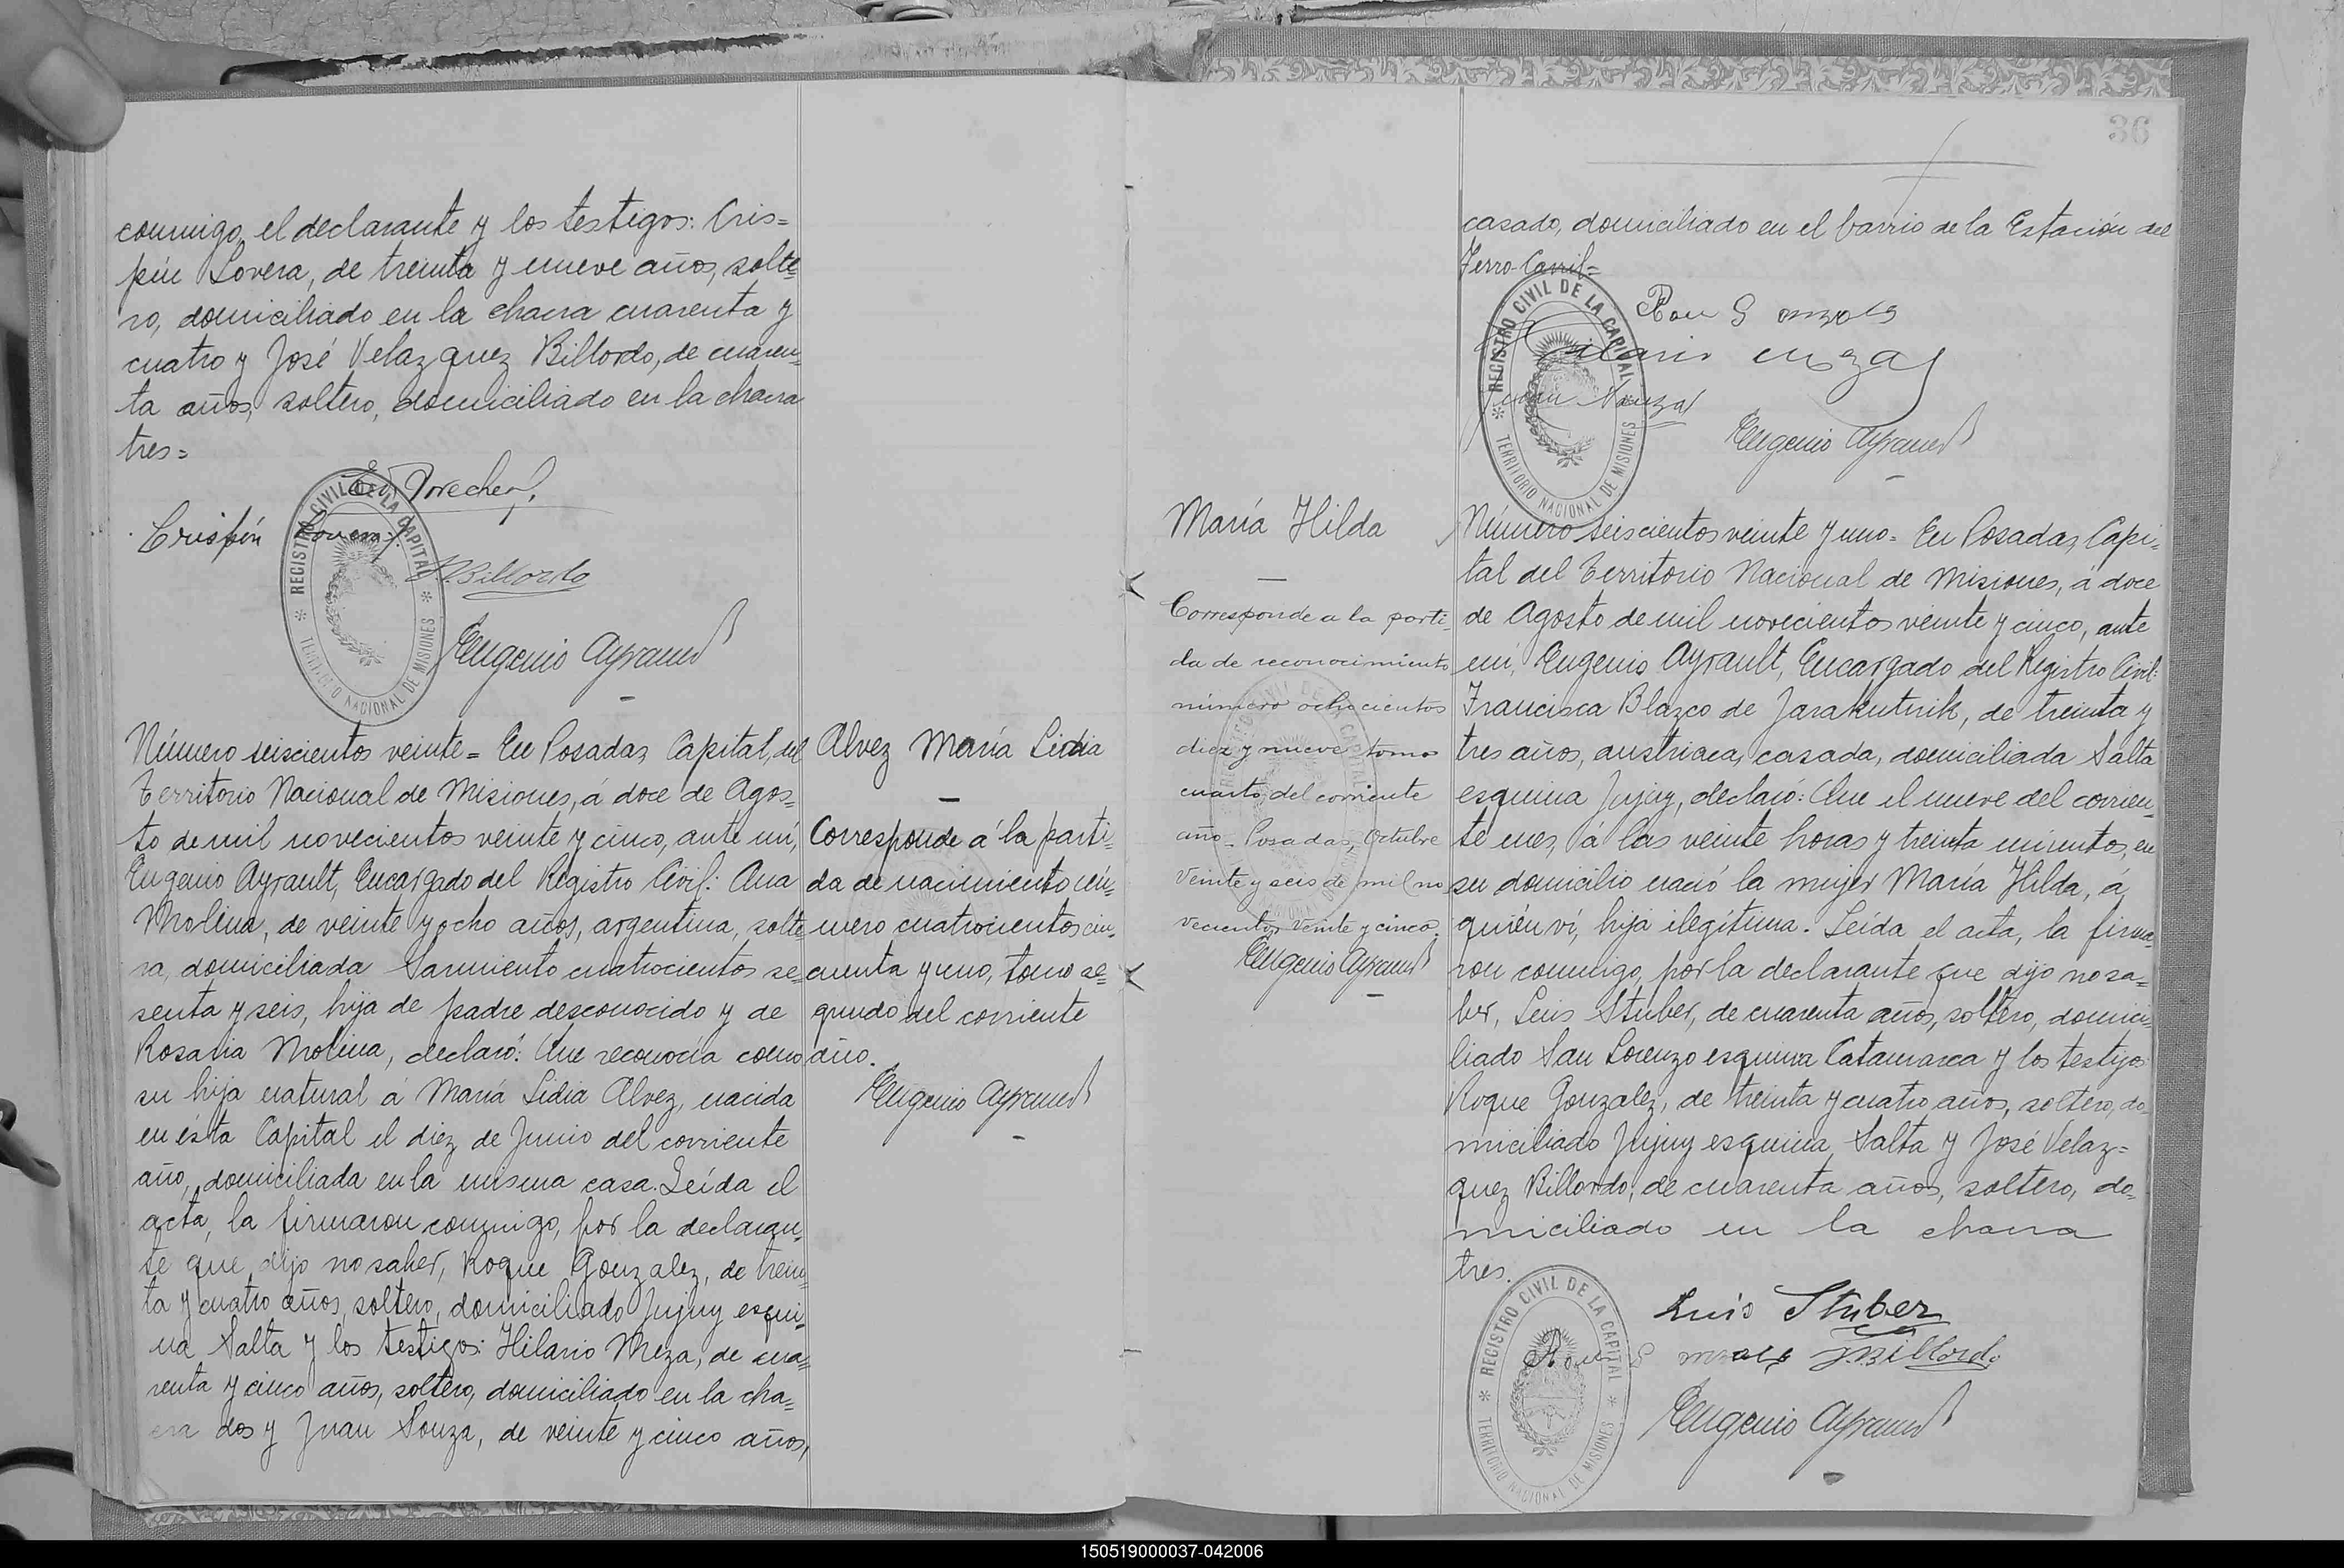 conmigo, el declarante y los testigos: Cris=
pín Lovera, de treinta y nueve años, solte=
ro, domiciliado en la chacra cuarenta y
cuatro y José Velazquez Billordo, de cuaren=
ta años, soltero, domiciliado en la chacra
tres=
Crispín Lovera
J.V. Billordo
Eugenio Ayrault
REGISTRO CIVIL DE LA CAPITAL
TERRITORIO NACIONAL DE MISIONES
Número seiscientos veinte= En Posadas, Capital, del
Territorio Nacional de Misiones, á doce de Agos=
to de mil novecientos veinte y cinco, ante mí,
Eugenio Ayrault, Encargado del Registro Civil: Ana
Molina, de veinte y ocho años, argentina, solte=
ra, domiciliada Sarmiento cuatrocientos se=
senta y seis, hija de padre desconocido y de
Rosaria Molina, declaró: Que reconocía como
su hija natural á María Lidia Alvez, nacida
en ésta Capital el diez de Junio del corriente
año, domiciliada en la misma casa. Leída el
acta, la firmaron conmigo, por la declaran=
te que dijo no saber, Roque Gonzalez, de trein=
ta y cuatro años, soltero, domiciliado Jujuy esqui=
na Salta y los testigos: Hilario Meza, de cua=
renta y cinco años, soltero, domiciliado en la cha=
cra dos y Juan Souza, de veinte y cinco años,
Alvez María Lidia
Corresponde á la parti=
da de nacimiento nú=
mero cuatrocientos cin=
cuenta y uno, tomo se=
gundo del corriente
año.
Eugenio Ayrault
36
casado, domiciliado en el barrio de la Estación del
Ferro-Carril=
Roq Gonzales
Hilario Meza
Juan Souza
Eugenio Ayrault
REGISTRO CIVIL DE LA CAPITAL
TERRITORIO NACIONAL DE MISIONES
María Hilda
Corresponde a la parti=
da de reconocimiento
número ochocientos
diez y nueve, tomo
cuarto, del corriente
año_ Posadas, Octubre
veinte y seis de mil no
vecientos veinte y cinco.
Eugenio Ayrault
Número seiscientos veinte y uno= En Posadas, Capi=
tal del Territorio Nacional de Misiones, á doce
de Agosto de mil novecientos veinte y cinco, ante
mí, Eugenio Ayrault, Encargado del Registro Civil:
Francisca Blazco de Jarakutnik, de treinta y
tres años, austriaca, casada, domiciliada Salta
esquina Jujuy, declaró: Que el nueve del corrien=
te mes, á las veinte horas y treinta minutos, en
su domicilio nació la mujer María Hilda, á
quién ví, hija ilegítima. Leída el acta, la firma=
ron conmigo, por la declarante que dijo no sa=
ber, Luis Stuber, de cuarenta años, soltero, domici=
liado San Lorenzo esquina Catamarca y los testigos
Roque Gonzalez, de treinta y cuatro años, soltero, do=
miciliado Jujuy esquina Salta y José Velaz=
quez Billordo, de cuarenta años, soltero, do=
miciliado en la chacra
tres.
Luis Stuber
Roq Gonzales J.V. Billordo
Eugenio Ayrault
REGISTRO CIVIL DE LA CAPITAL
TERRITORIO NACIONAL DE MISIONES
150519000037-042006